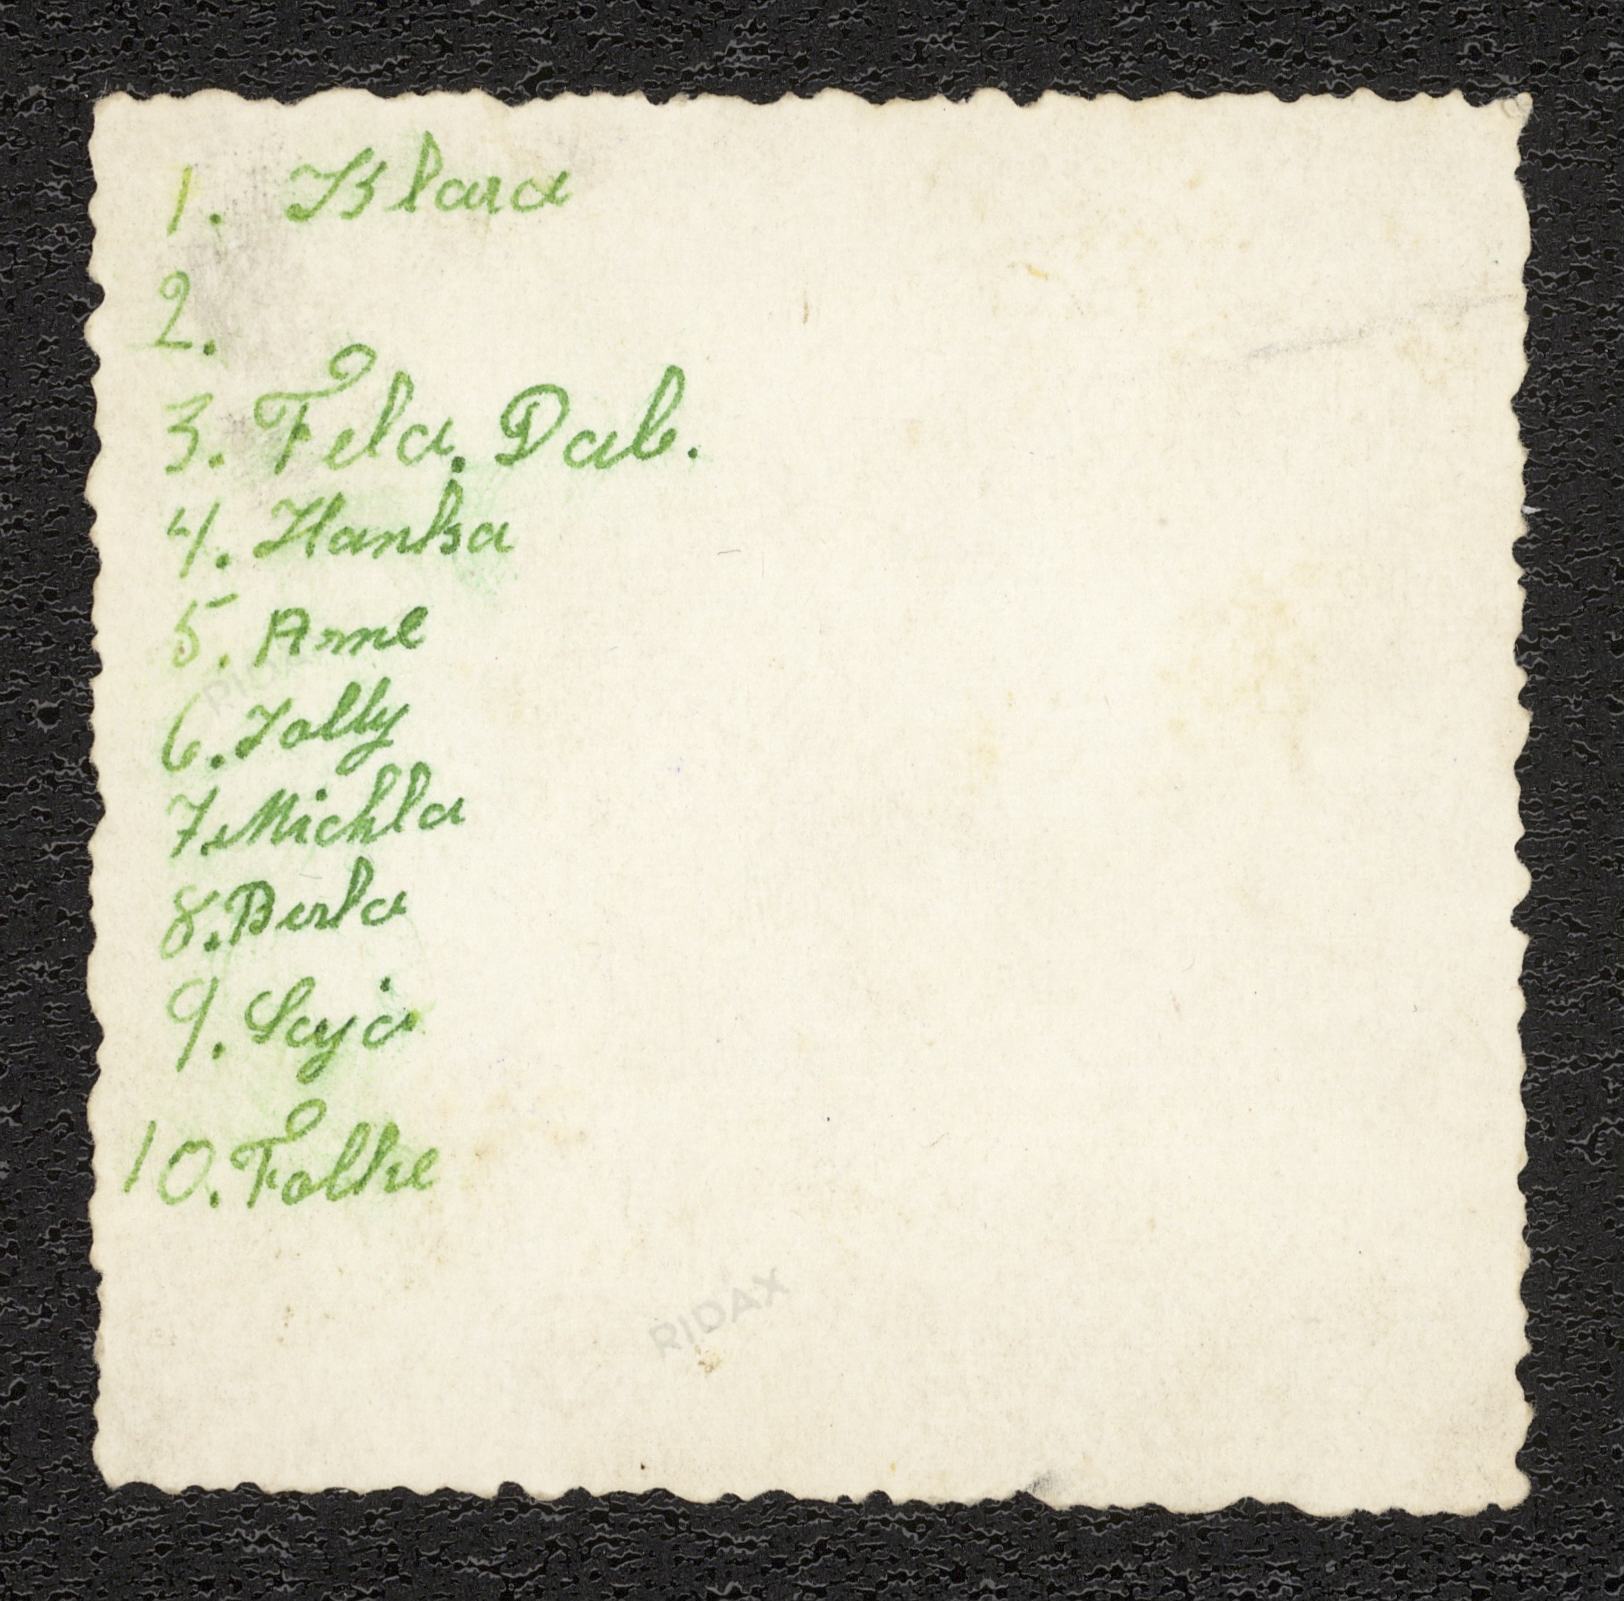 1. Klara
2.
3. Fela. Dab.
4. Hanka
5. Arne
6. Jolly
7. Michla
8. Berla
9. Saja
10. Folke
RIDAX